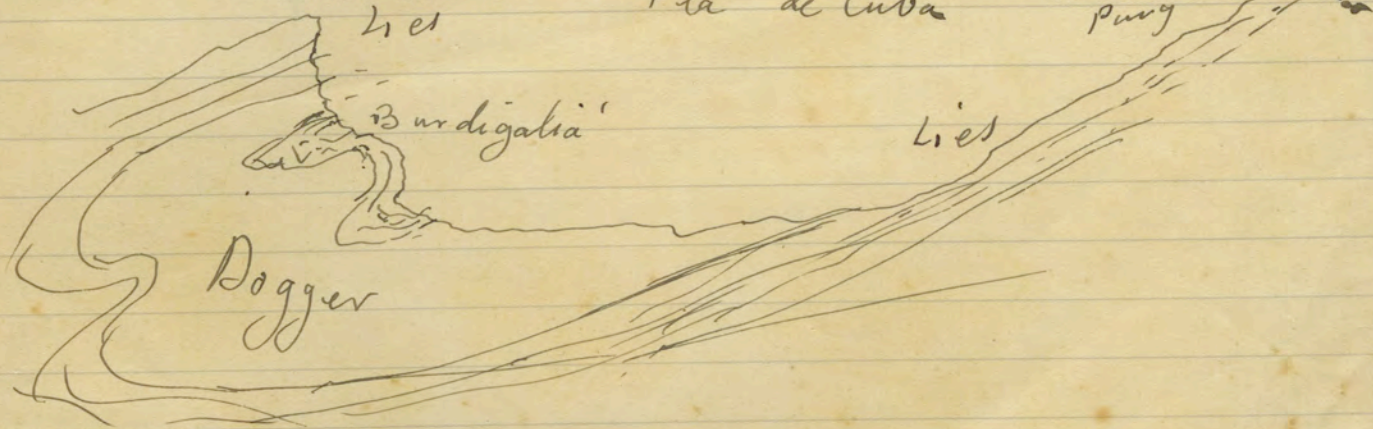 Lies
Pla de Cuba
Puig
Burdigalià
Lies
Dogger